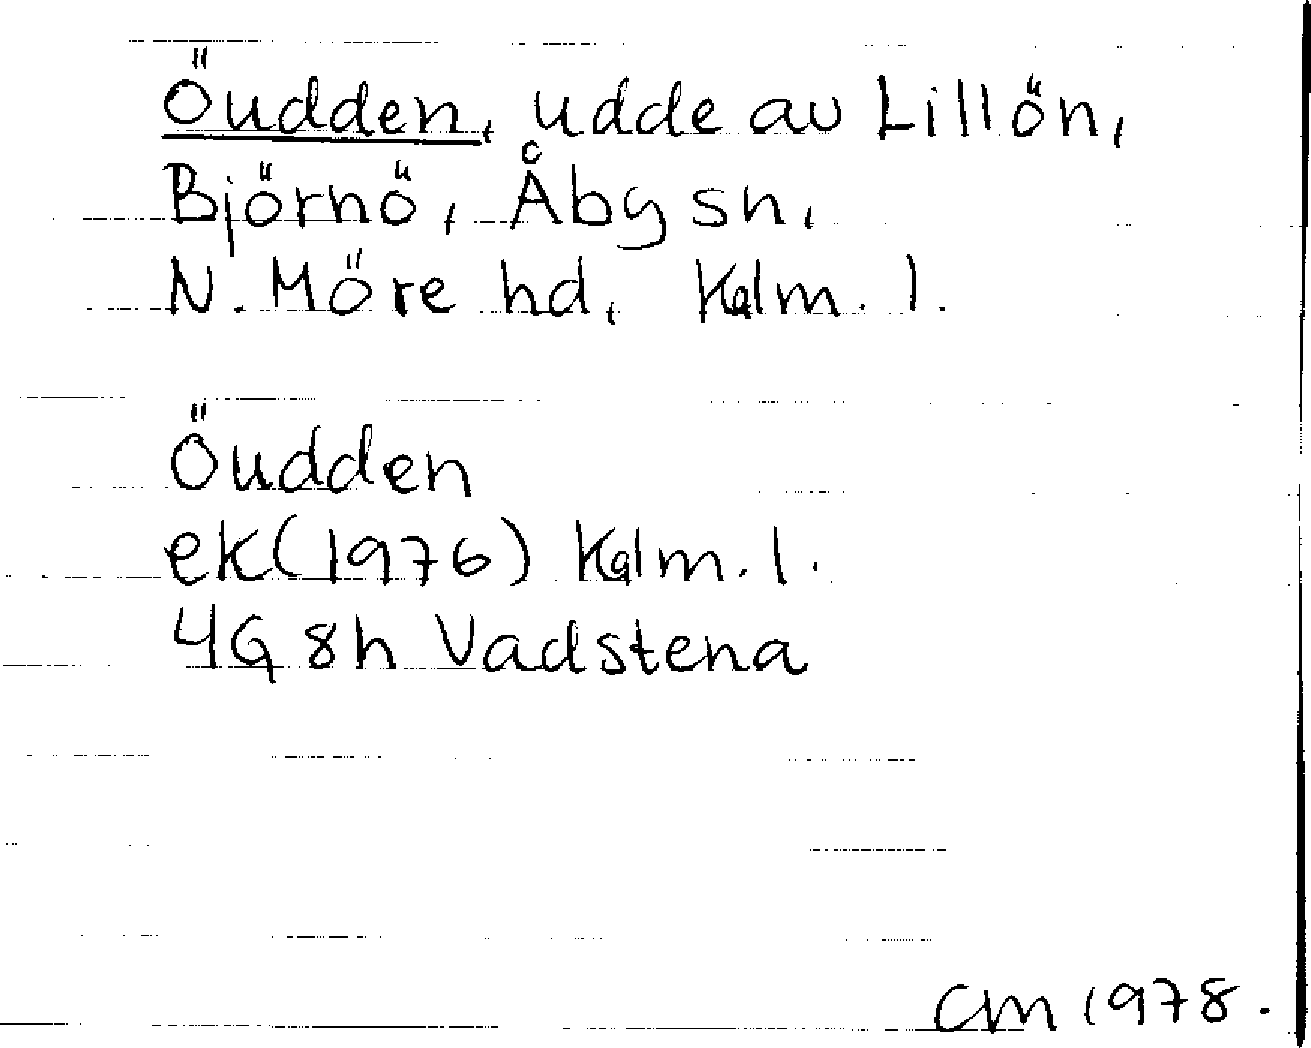 Öudden, udde av Lillön,
Björnö, Åby sn,
N. Möre hd, Kalm. l.
Öudden
ek(1976) Kalm. l.
4G 8h Vadstena
CM 1978.